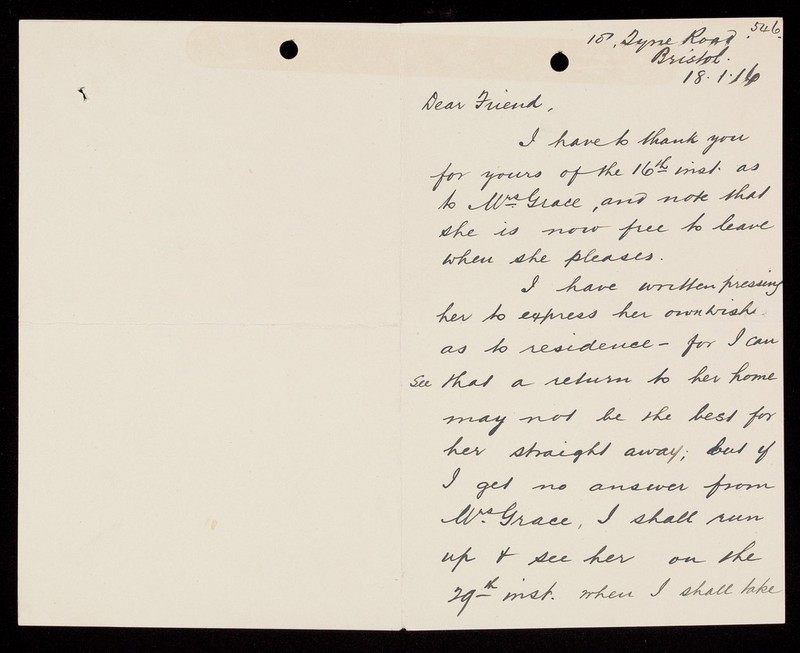 546.
18, Tyne Road.
Bristol.
18.1.16
Dear Friend,
I have to thank you
for yours of the 16th inst. as
to Mrs Grace, and note that
she is now free to leave
when she pleases.
I have written pressing
her to express her own wish
as to residence - for I can
see that a return to her home
may not be the best for
her straight away; but if
I get no answer from
Mrs Grace, I shall run
up & see her on the
29th inst. when I shall take